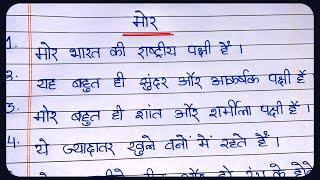 मोर
1. मोर भारत की राष्ट्रीय पक्षी हैं ।
2. यह बहुत ही सुंदर और आकर्षक पक्षी हैं
3. मोर बहुत ही शांत और शर्मीला पक्षी हैं ।
4. ये ज्यादातर खुले वनों में रहते हैं ।